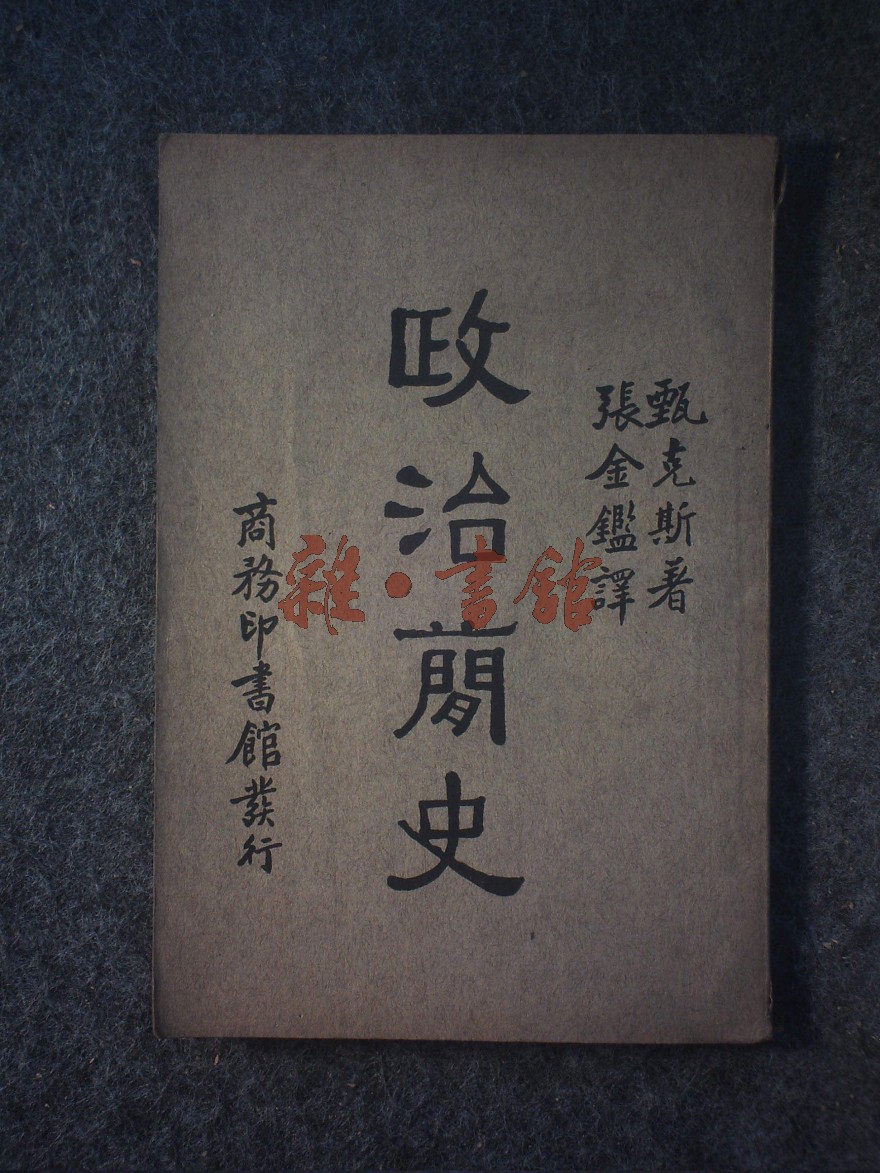 甄克斯著
張金鑑譯
政治簡史
商務印書館發行
雜·書館